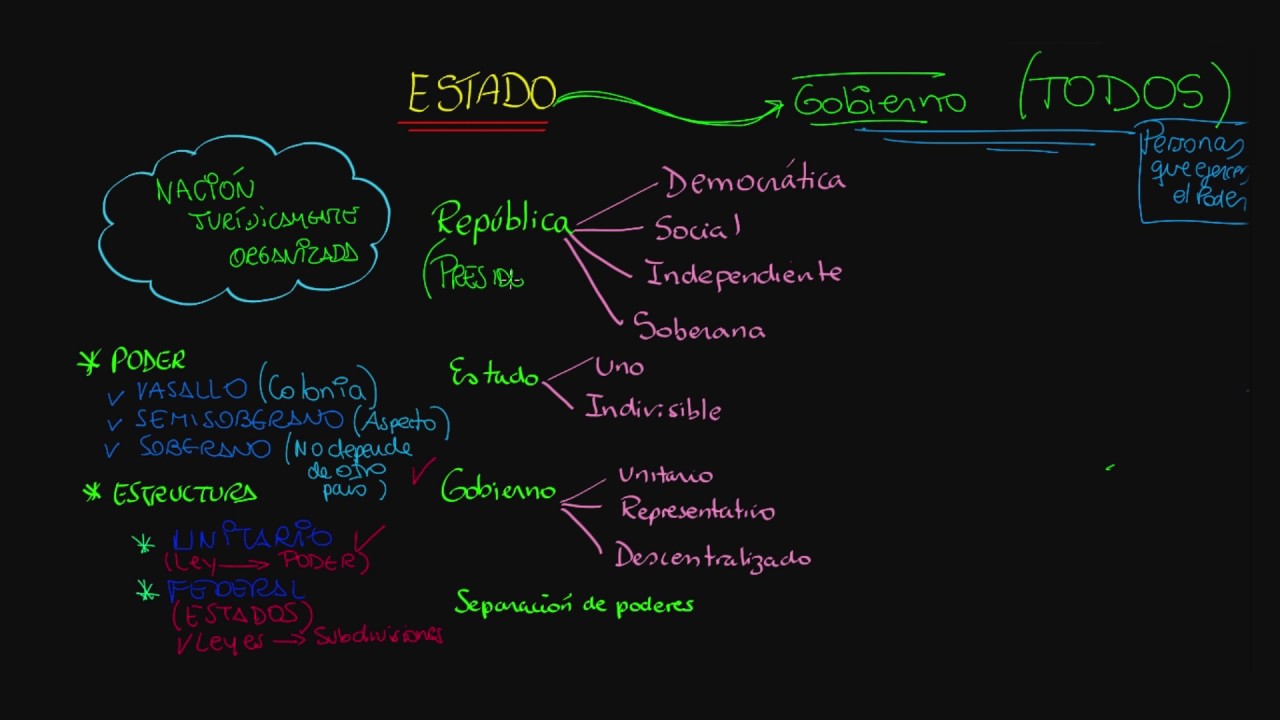 ESTADO
Gobierno (TODOS)
Personas
que ejercen
el Poder
NACIÓN
JURÍDICAMENTE
ORGANIZADA
República
(PRESIDE
Democrática
Social
Independiente
Soberana
* PODER
✓ VASALLO (Colonia)
✓ SEMISOBERANO (Aspecto)
✓ SOBERANO (No depende
de otro
país)
* ESTRUCTURA
* UNITARIO ✓
(Ley → PODER)
* FEDERAL
(ESTADOS)
✓ Leyes → Subdivisiones
Estado
Uno
Indivisible
✓ Gobierno
Unitario
Representativo
Descentralizado
Separación de poderes